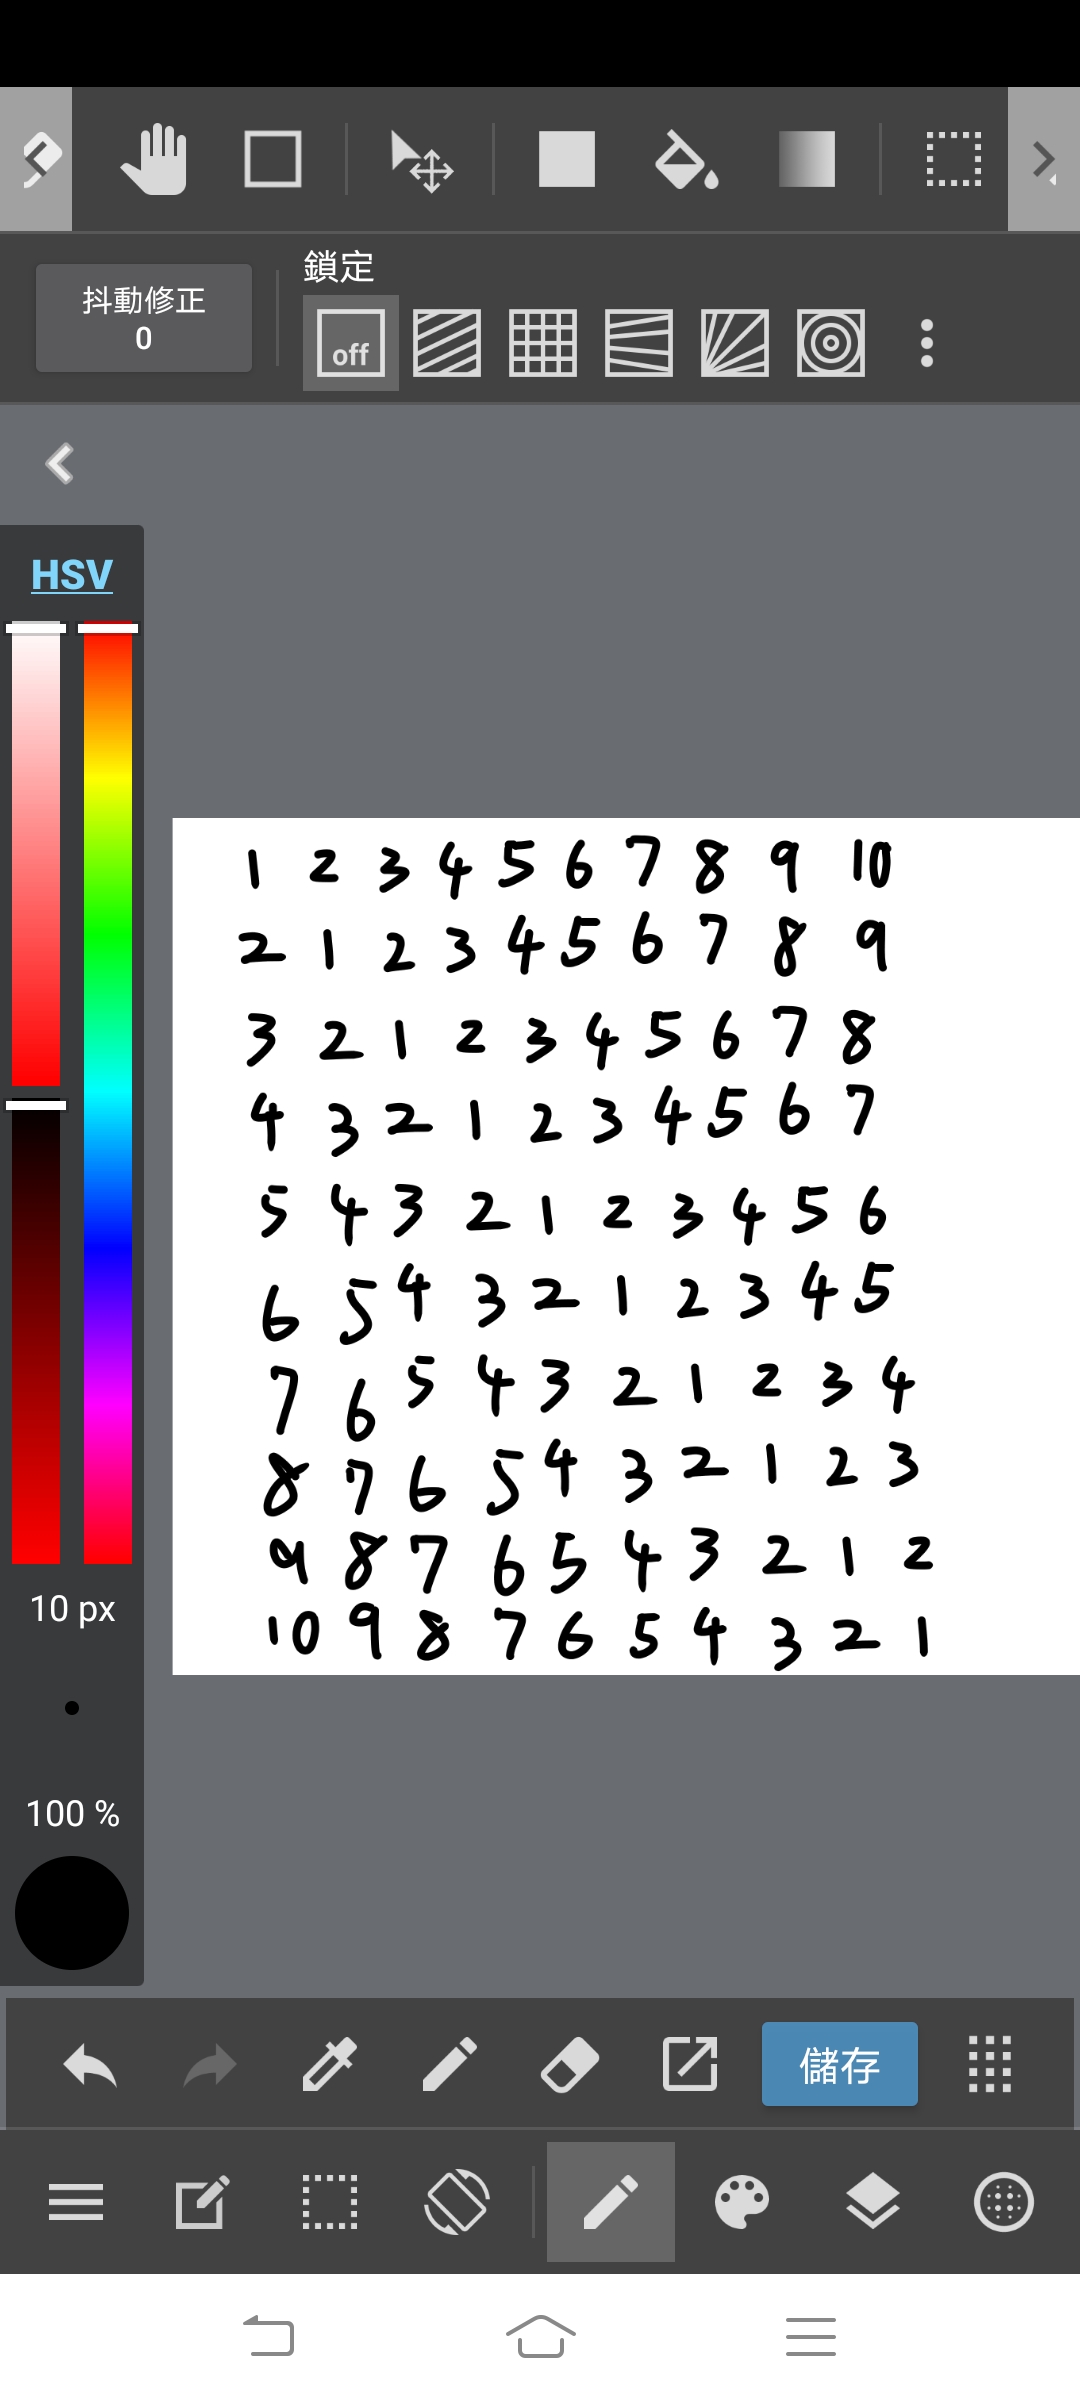 鎖定
抖動修正
0
off
HSV
1 2 3 4 5 6 7 8 9 10
2 1 2 3 4 5 6 7 8 9
3 2 1 2 3 4 5 6 7 8
4 3 2 1 2 3 4 5 6 7
5 4 3 2 1 2 3 4 5 6
6 5 4 3 2 1 2 3 4 5
7 6 5 4 3 2 1 2 3 4
8 7 6 5 4 3 2 1 2 3
9 8 7 6 5 4 3 2 1 2
10 9 8 7 6 5 4 3 2 1
10 px
100 %
儲存